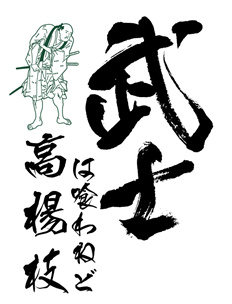 武士
は喰わねど
高楊枝